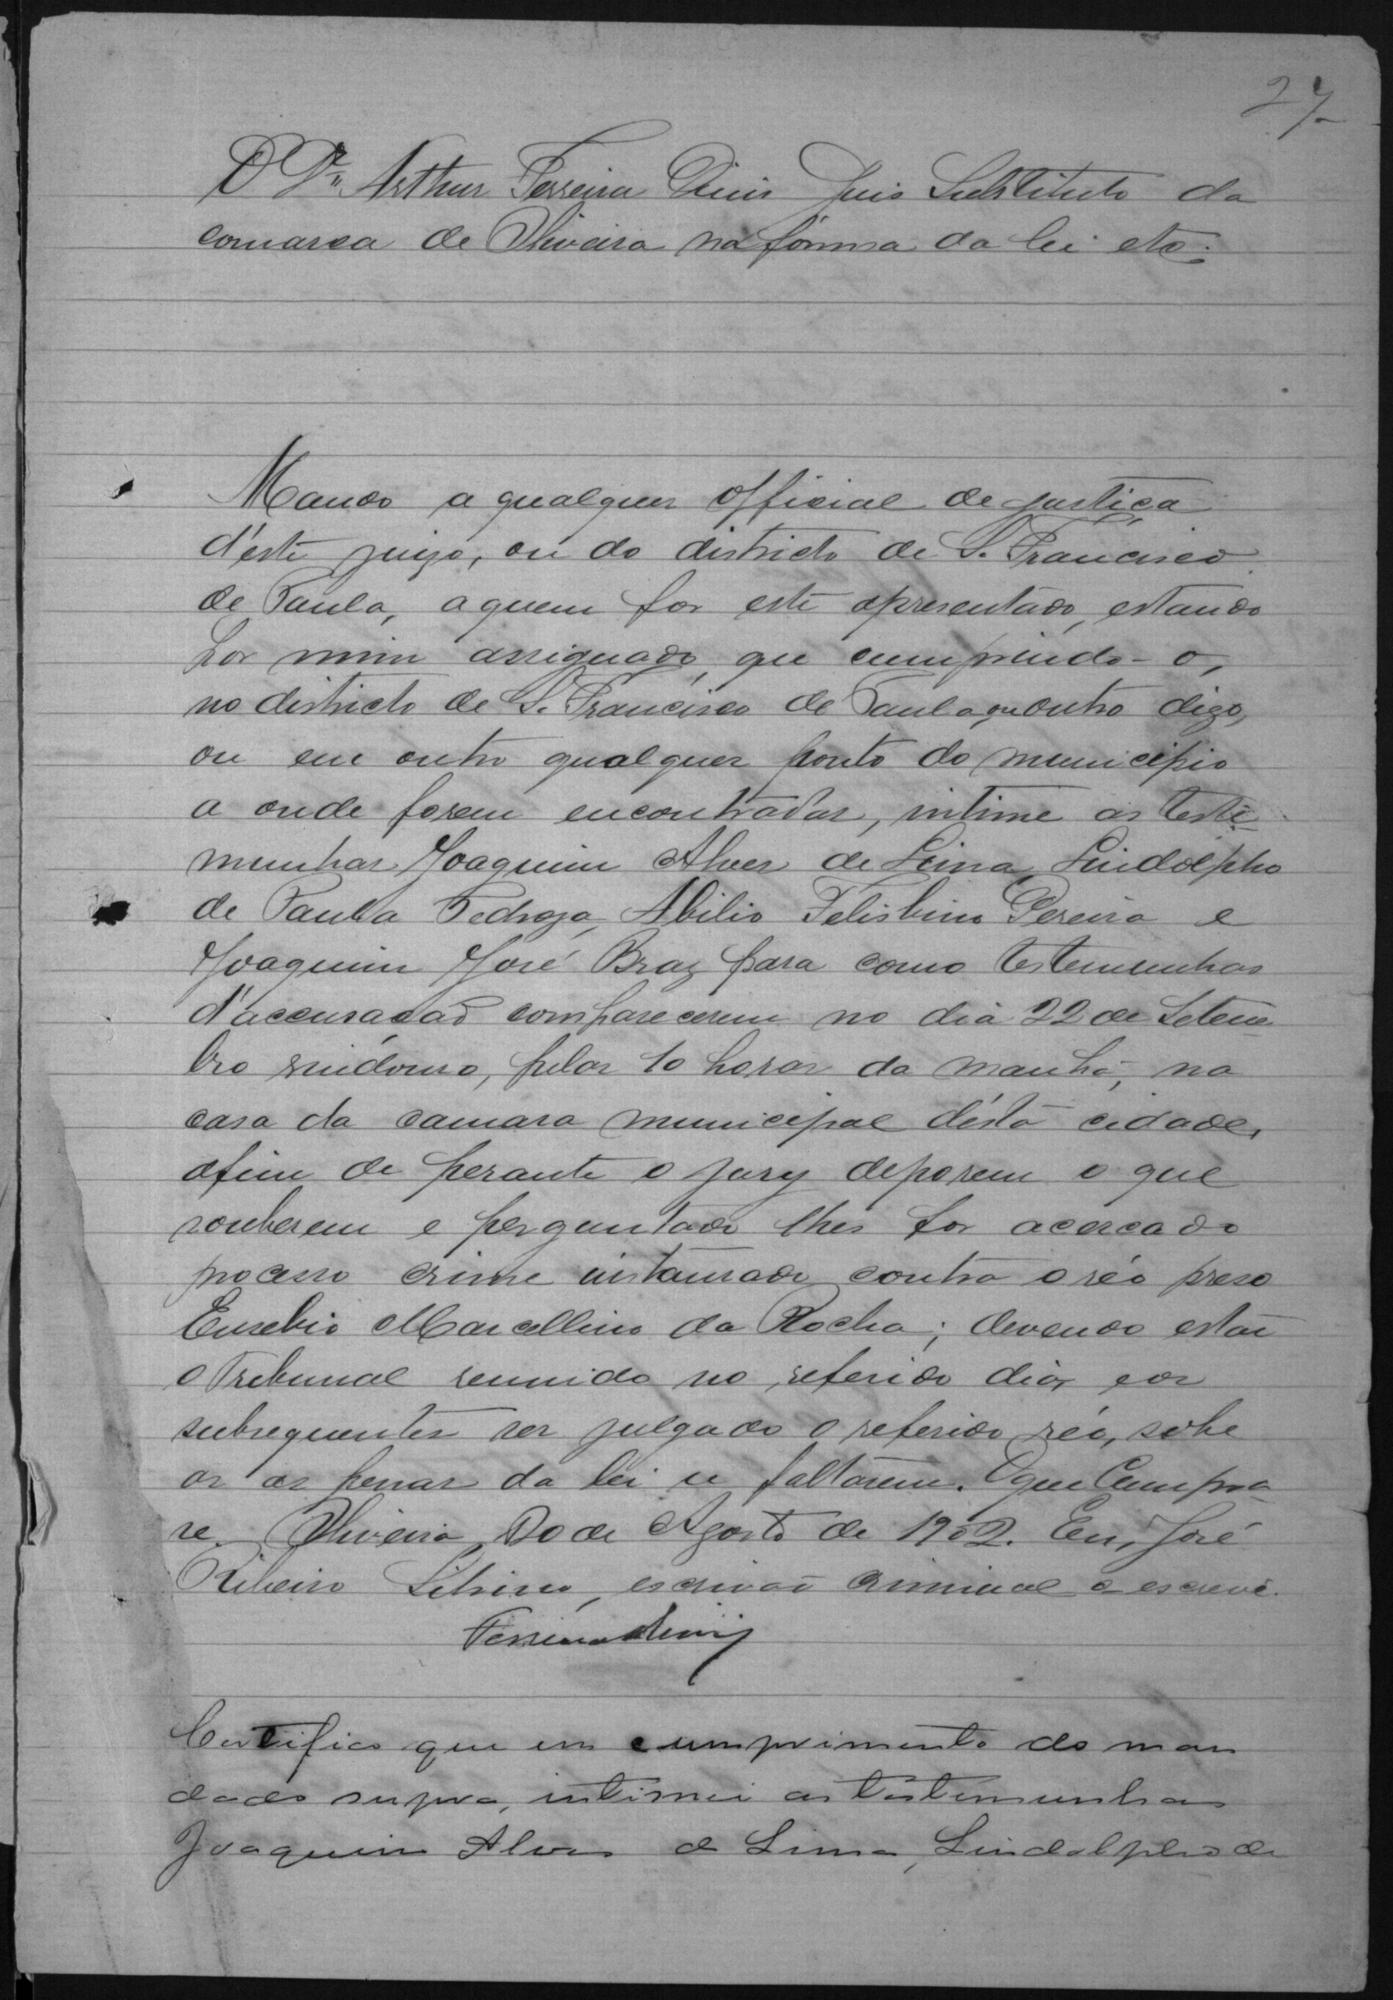 27
O Dr. Arthur Ferreira Diniz Juis Substituto da
comarca de Oliveira na fórma da lei etc.
Mando a qualquer official de justiça
d'este juizo, ou do districto de S. Francisco
de Paula, a quem for este apresentado, estando
por mim assignado, que cumprindo-o,
no districto de S. Francisco de Paula, ou outro digo,
ou em outro qualquer ponto do municipio
a onde forem encontradas, intime as teste
munhas Joaquim Alves de Lima, Lindolpho
de Paula Pedroza, Abilio Felisbino Pereira e
Joaquim José Braz para como testemunhas
d'accusação comparecerem no dia 22 de Setem
bro vindouro, pelas 10 horas da manhã, na
casa da camara municipal désta cidade,
afim de perante o jury deporem o que
souberem e perguntado lhes for acerca do
processo crime instaurado contra o réo preso
Eusebio Marcellino da Rocha; devendo estar
o Tribunal reunido no referido dia, e os
subsequentes ser julgado o referido réo, sobe
as as penas da lei se faltarem. O que Cumpra
se. Oliveira, 20 de Agosto de 1902. Eu, José
Ribeiro, escrivão criminal o escrevi.
Ferreira Diniz
Certifico que em cumprimento do man
dado supra, intimei as testemunhas
Joaquim Alves de Lima, Lindolpho de